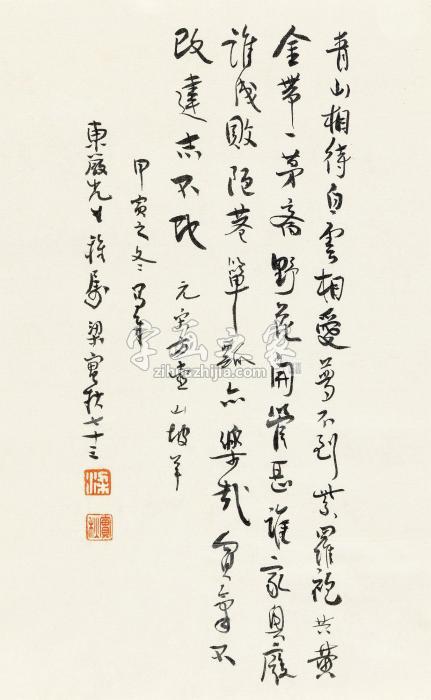 青山相待白雲相愛夢不到紫羅袍共黃
金帶一茅齋野花開管甚誰家興廢
誰成敗陋巷簞瓢亦樂哉貧氣不
改達志不改 元宋方壺山坡羊
甲寅之冬寫奉
東巖先生雅屬 梁實秋七十三
梁
實秋
字画之家
zihuazhijia.com